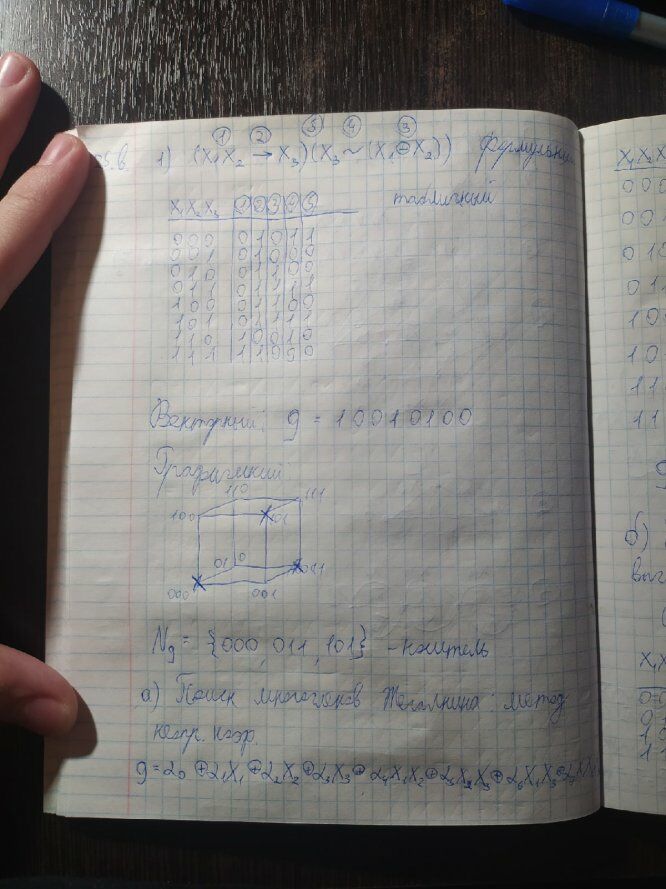 ① ② ⑤ ④ ③
1) (X₁X₂ → X₃)(X₃ ~ (X₁⊕X₂))
X₁ X₂ X₃ ① ② ③ ④ ⑤ табличный
0 0 0 0 1 0 1 1
0 0 1 0 1 0 0 0
0 1 0 0 1 1 0 0
0 1 1 0 1 1 1 1
1 0 0 0 1 1 0 0
1 0 1 0 1 1 1 1
1 1 0 1 0 0 1 0
1 1 1 1 1 0 0 0
Векторный: g = 1 0 0 1 0 1 0 0
Графический
110 111
100 101
010 011
000 001
Ng = {000, 011, 101} - носитель
а) Поиск многочленов Жегалкина: метод
неопр. коэф.
g = α₀ ⊕ α₁X₁ ⊕ α₂X₂ ⊕ α₃X₃ ⊕ α₄X₁X₂ ⊕ α₅X₂X₃ ⊕ α₆X₁X₃ ⊕
X₁ X₂ X
0 0 0
0 0
0 1 0
0 1 1
1 0
1 0
1 1
1 1
б)
X₁X
0
0
1
1